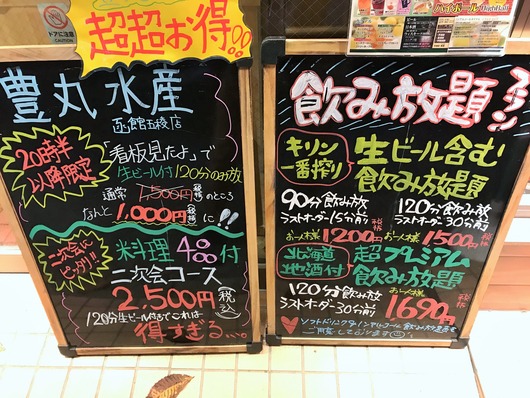 超超お得!!
豊丸水産
函館五稜店
20時半
以降限定
「看板見たよ」で
生ビール付120分のみ放
通常 1,500円 税抜 のところ
なんと 1,000円 税抜 に!!
二次会に
ピッタリ
料理 4品付
二次会コース
2,500円 (税込)
120分生ビール付きでこれは
得すぎる...。
飲み放題
キリン
一番搾り
生ビール含む
飲み放題
90分飲み放
ラストオーダー15分前
お一人様 1200円 税抜
120分飲み放
ラストオーダー30分前
お一人様 1500円 税抜
北海道
地酒付
超プレミアム
飲み放題
120分飲み放
ラストオーダー30分前
お一人様 1690円 税抜
ソフトドリンク&ノンアルコール飲み放題も
ご用意しております